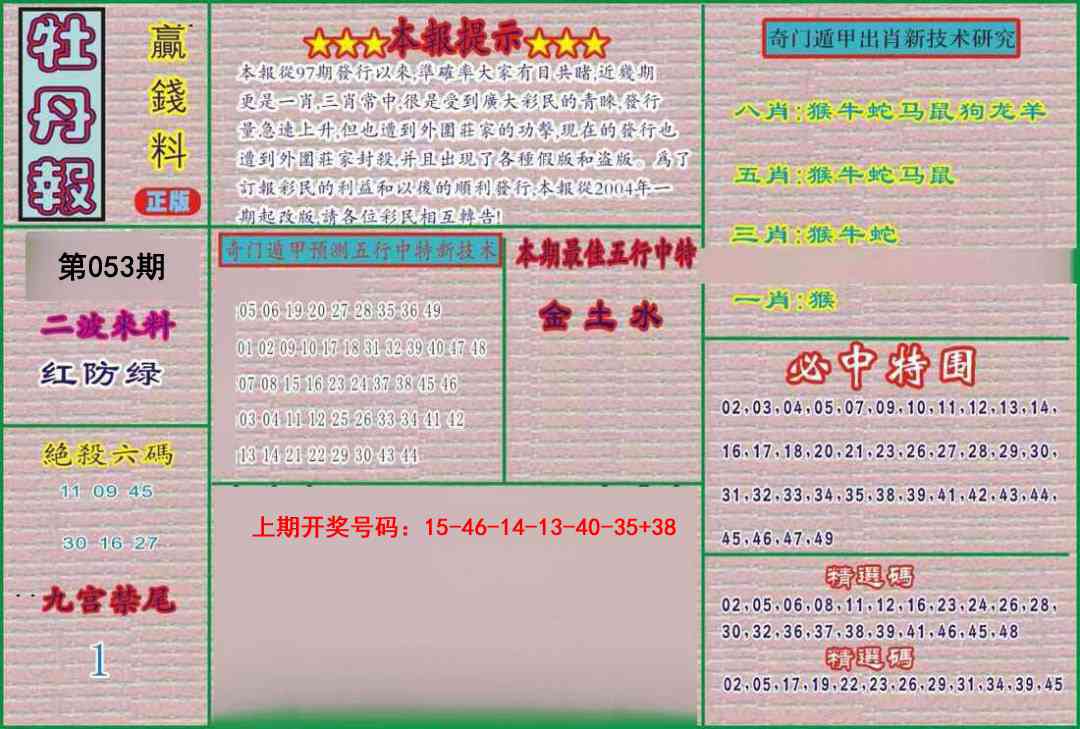 牡丹報
贏錢料
正版
★★★本報提示★★★
本報從97期發行以來,準確率大家有目共睹,近幾期
更是一肖,三肖常中,很是受到廣大彩民的青睞,發行
量急速上升,但也遭到外圍莊家的功擊,現在的發行也
遭到外圍莊家封殺,并且出現了各種假版和盗版。爲了
訂報彩民的利益和以後的順利發行,本報從2004年一
期起改版,請各位彩民相互轉告!
奇门遁甲出肖新技术研究
八肖:猴牛蛇马鼠狗龙羊
五肖:猴牛蛇马鼠
三肖:猴牛蛇
一肖:猴
第053期
二波來料
红防绿
奇门遁甲预测五行中特新技术
05 06 19 20 27 28 35 36 49
01 02 09 10 17 18 31 32 39 40 47 48
07 08 15 16 23 24 37 38 45 46
03 04 11 12 25 26 33 34 41 42
13 14 21 22 29 30 43 44
本期最佳五行中特
金土水
必中特围
02,03,04,05,07,09,10,11,12,13,14,
16,17,18,20,21,23,26,27,28,29,30,
31,32,33,34,35,38,39,41,42,43,44,
45,46,47,49
絕殺六碼
11 09 45
30 16 27
九宫禁尾
1
上期开奖号码：15-46-14-13-40-35+38
精選碼
02,05,06,08,11,12,16,23,24,26,28,
30,32,36,37,38,39,41,46,45,48
精選碼
02,05,17,19,22,23,26,29,31,34,39,45